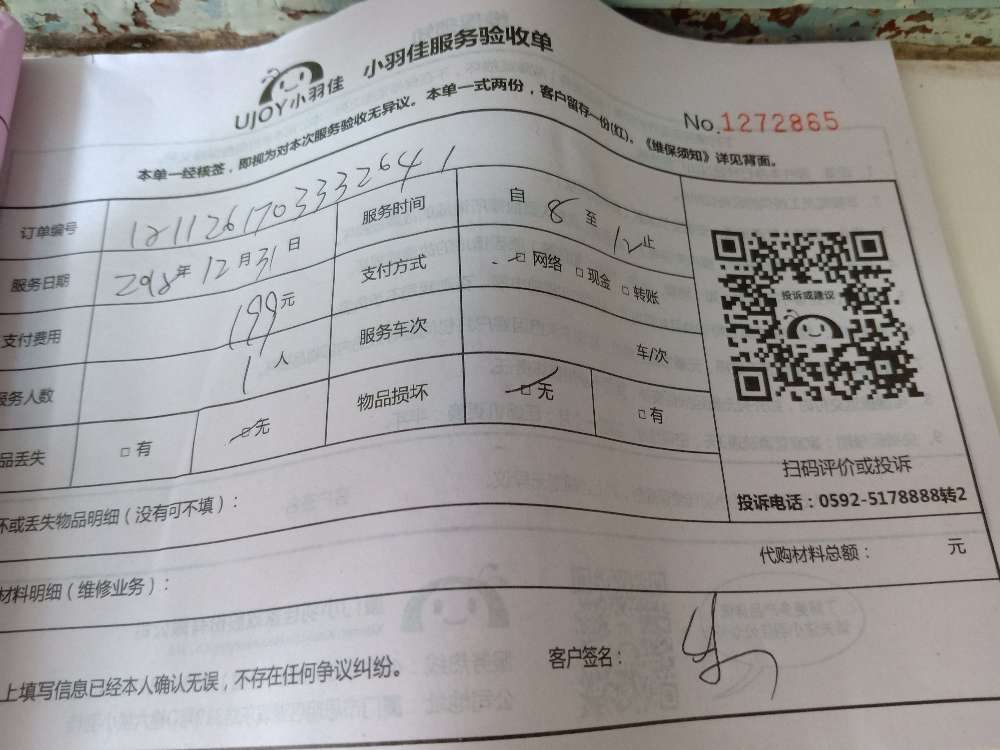 UJOY小羽佳 小羽佳服务验收单
本单一经核签，即视为对本次服务验收无异议。本单一式两份，客户留存一份(红)。《维保须知》详见背面。
No.1272865
订单编号 1211261703332641 服务时间 自 8 至 12 止
服务日期 2018年12月31日 支付方式 □网络 □现金 □转账
支付费用 199元 服务车次 车/次
服务人数 1人 物品损坏 □无 □有
品丢失 □有 □无
投诉或建议
扫码评价或投诉
投诉电话：0592-5178888转2
坏或丢失物品明细（没有可不填）：
代购材料总额： 元
材料明细（维修业务）：
上填写信息已经本人确认无误，不存在任何争议纠纷。 客户签名：